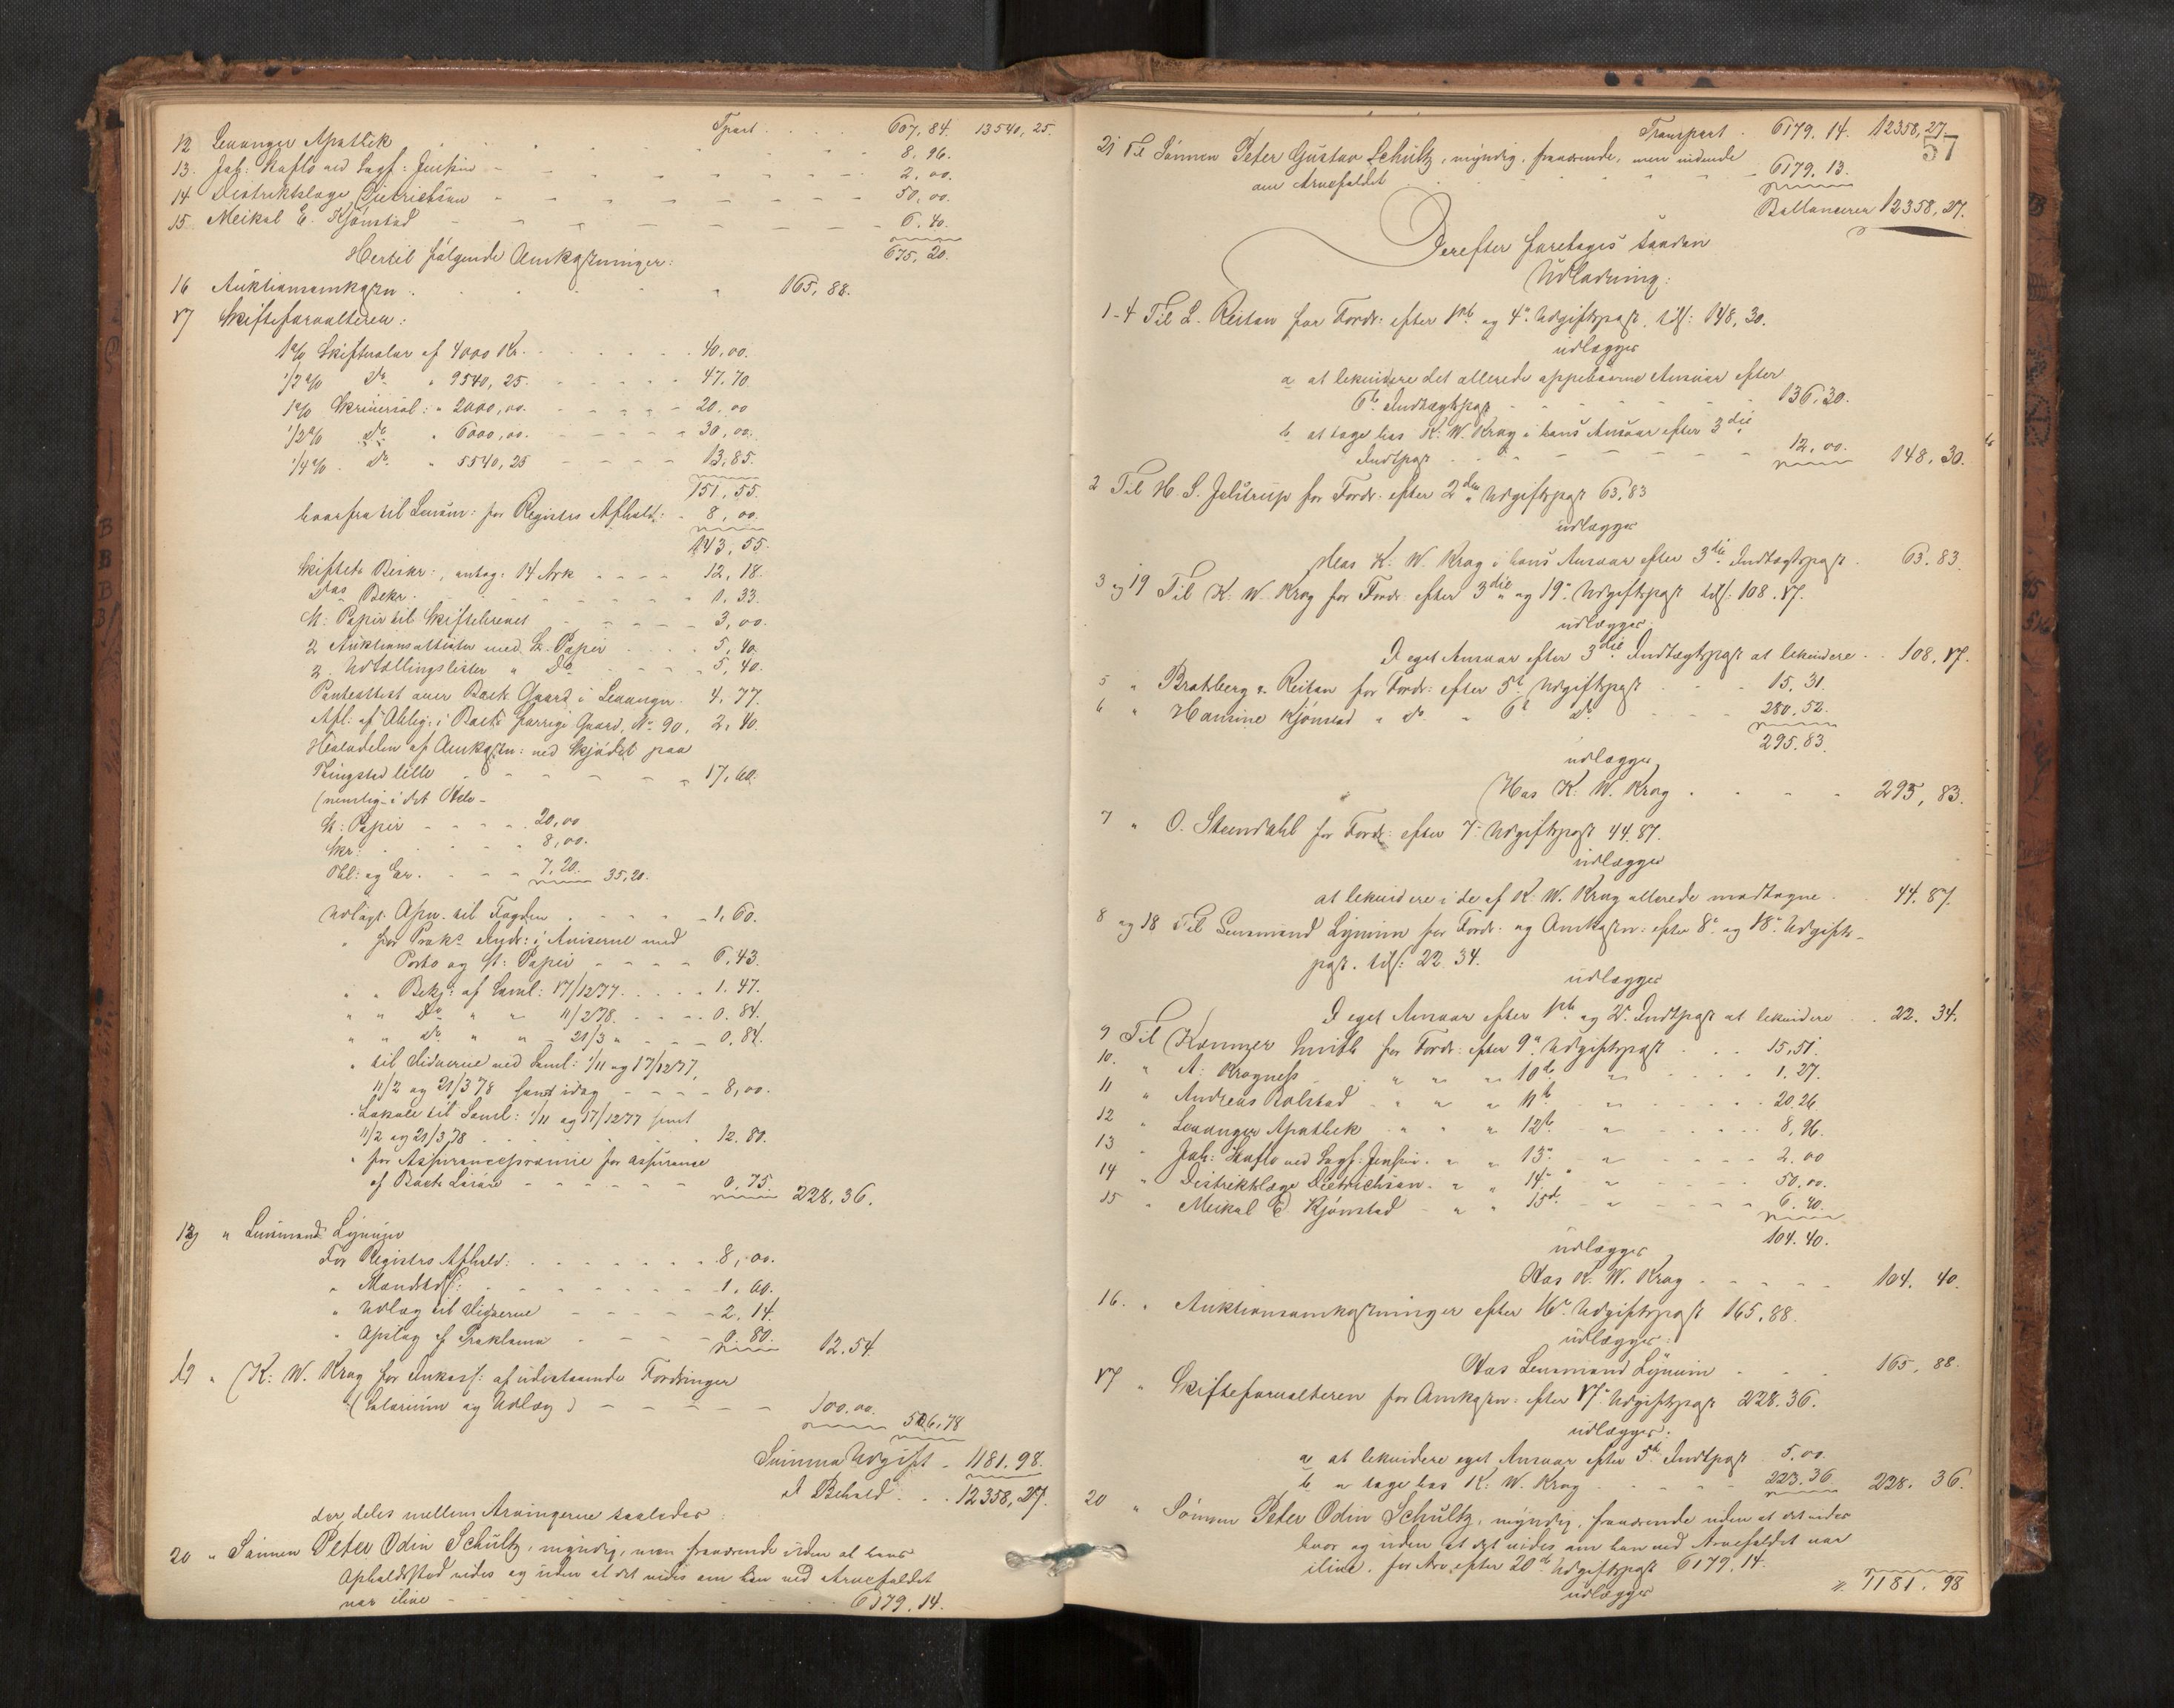 Tpart . . . 607, 84. 13540, 25.
12 Levanger Apothek . . . 8. 96.
13. Joh: Haflo ved Sagf: Jenssen - - - 2. 00.
14 Distriktslæge Dietrichson - - - 50, 00.
15. Meikal E. Kjönstad - - - 6. 40.
675, 20.
Hertil følgende Omkostninger:
16 Auktionsomkostn . . . 165, 88.
17 Skifteforvalteren:
1 % Skiftesalar af 4000 Kr. . . . 40, 00.
1/2 % Do " 9540, 25. . . . 47. 70.
1 % Skriversal: " 2000, 00. - - - 20. 00
1/2 % Do " 6000, 00. - - - 30, 00.
1/4 % . Do " 5540, 25 - - - 13, 85.
151, 55.
hvorfra til Lensm: for Registrs Afhold: - 8, 00.
143, 55.
Skiftets Beskr:, antag: 14 Ark - - - 12, 18.
Dets Bekr. - - - 1. 33.
St: Papir til Skiftebrevet - - - 3, 00.
2 Auktionsattester med St. Papir . . . 5, 40.
2 Udtællingslister " Do - - - 5, 40.
Panteattest over Bach Gaard i Levanger. 4, 77.
Afl: af Oblig: i Bachs forrige Gaard, No 90, 2, 40.
Halvdelen af Omkostn: ved Skjödet paa
Thingstad lille - - - 17, 60.
(nemlig i det Hele -
St: Papir - - - 20, 00
Skr: . . . 8, 00.
Thl: og Er. - - - 7, 20. 35, 20.
Udlagt Afsn. til Fogden . . . 1, 60.
" for Prok: Indr: i Aviserne med
Porto og St: Papir - - - 6, 43.
" " Bekj: af Saml: 17/1277. . . . 1. 47.
" " Do " " 11/278. . . . 0. 84.
" " Do " " 21/3 " - - - 0, 84.
" til Vidnerne ved Saml: 1/11 og 17/1277,
11/2 og 21/378 samt idag - - - 8, 00.
. Lokale til Saml: 1/11 og 17/1277 samt
11/2 og 21/378 . . . 12. 80.
" for Assurancepræmie for assurance
af Bachs Løsøre - - - 0, 75. 228, 36.
18 " Lensmand Lynum
For Registrs Afhold: . . . 8, 00.
" Mandtal: . . . 1, 60.
" Udlæg til Vidnerne - - - 2, 14.
" Opslag af Proklama - - - 0. 80. 12. 54.
19 " K: W. Krog for Inkass: af udestaaende Fordringer
(Salarium og Udlæg) - - - 100. 00. 506, 78
Summa Udgift - 1181. 98.
I Behold . . . 12358, 27.
der deles mellem Arvingerne saaledes:
20 " Sönnen Peter Odin Schultz, myndig, men fraværende uden at hans
Opholdssted vides og uden at det vides om han ved Arvefaldet
var ilive - - - 6179. 14.
57
Transport . 6179. 14. 12358, 27.
21 Til Sönnen Peter Gustav Schultz, myndig, fraværende, men vidende
om Arvefaldet . . . 6179, 13.
Ballancerer 12358, 27.
Derefter foretoges saadan
Udlodning:
1-4 Til L. Reitan for Fordr: efter 1ste og 4de Udgiftspost, tils: 148, 30.
udlægges
a at lekvidere det allerede oppebaarne Ansvar efter
6te Indtægtspost - - - 136, 30.
b. at tage hos K: W. Krog i hans Ansvar efter 3die
Indtpost - - - 12, 00. 148, 30.
2 Til H. S. Jelstrup for Fordr: efter 2den Udgiftspost 63, 83
udlægges
Hos K: W. Krog i hans Ansvar efter 3die Indtægtspost . 63. 83.
3 og 19 Til K. W. Krog for Fordr: efter 3die og 19de Udgiftspost tils: 108. 17.
udlægges
I eget Ansvar efter 3die Indtægtspost at lekvidere . . 108, 17.
5 " Bratberg & Reitan for Fordr: efter 5te Udgiftspost . . . 15, 31.
6 " Hansine Kjönstad " Do " 6te Do - - - 280, 52.
295. 83.
udlægges
Hos K: W. Krog . . . 295, 83.
7 " O. Steendahl for Fordr: efter 7de Udgiftspost 44. 87.
udlægges
at lekvidere i de af K: W. Krog allerede modtagne . 44. 87.
8 og 18 Til Lensmand Lynum for Fordr: og Omkostn: efter 8de og 18de Udgifts-
post. tils: 22. 34.
udlægges
I eget Ansvar efter 1ste og 2den Indtpost at lekvidere . . 22. 34.
9 Til Kæmner Smith for Fordr: efter 9de Udgiftspost . . . 15, 51.
10. " A: Krogness " " " 10de " . . . 1. 27.
11 " Andreas Rolstad - " " " 11te " . . . 20, 26.
12 " Levanger Apothek " " " 12te " . . . 8, 96.
13 " Joh: Haflo ved Sagf: Jenssen. " " 13de " - - - 2. 00
14 " Distriktslæge Dietrichson. " " 14de " . . . 50. 00.
15 " Meikal E. Kjönstad - " " 15de " - - - 6. 40.
104. 40.
udlægges
Hos K. W. Krog . . . 104. 40.
16. " Auktionsomkostninger efter 16de Udgiftspost 165. 88.
udlægges:
Hos Lensmand Lynum - . . . 165, 88.
17 " Skifteforvalteren for Omkostn: efter 17de Udgiftspost 228. 36.
udlægges:
a at lekvidere eget Ansvar efter 5te Indtpost . 5, 00.
b. " tage hos K: W. Krog . . . 223. 36 228. 36.
20 " Sönnen Peter Odin Schultz, myndig, fraværende uden at det vides
hvor og uden at det vides om han ved Arvefaldet var
ilive, for Arv efter 20de Udgiftspost 6179, 14.
udlægges
1181. 98